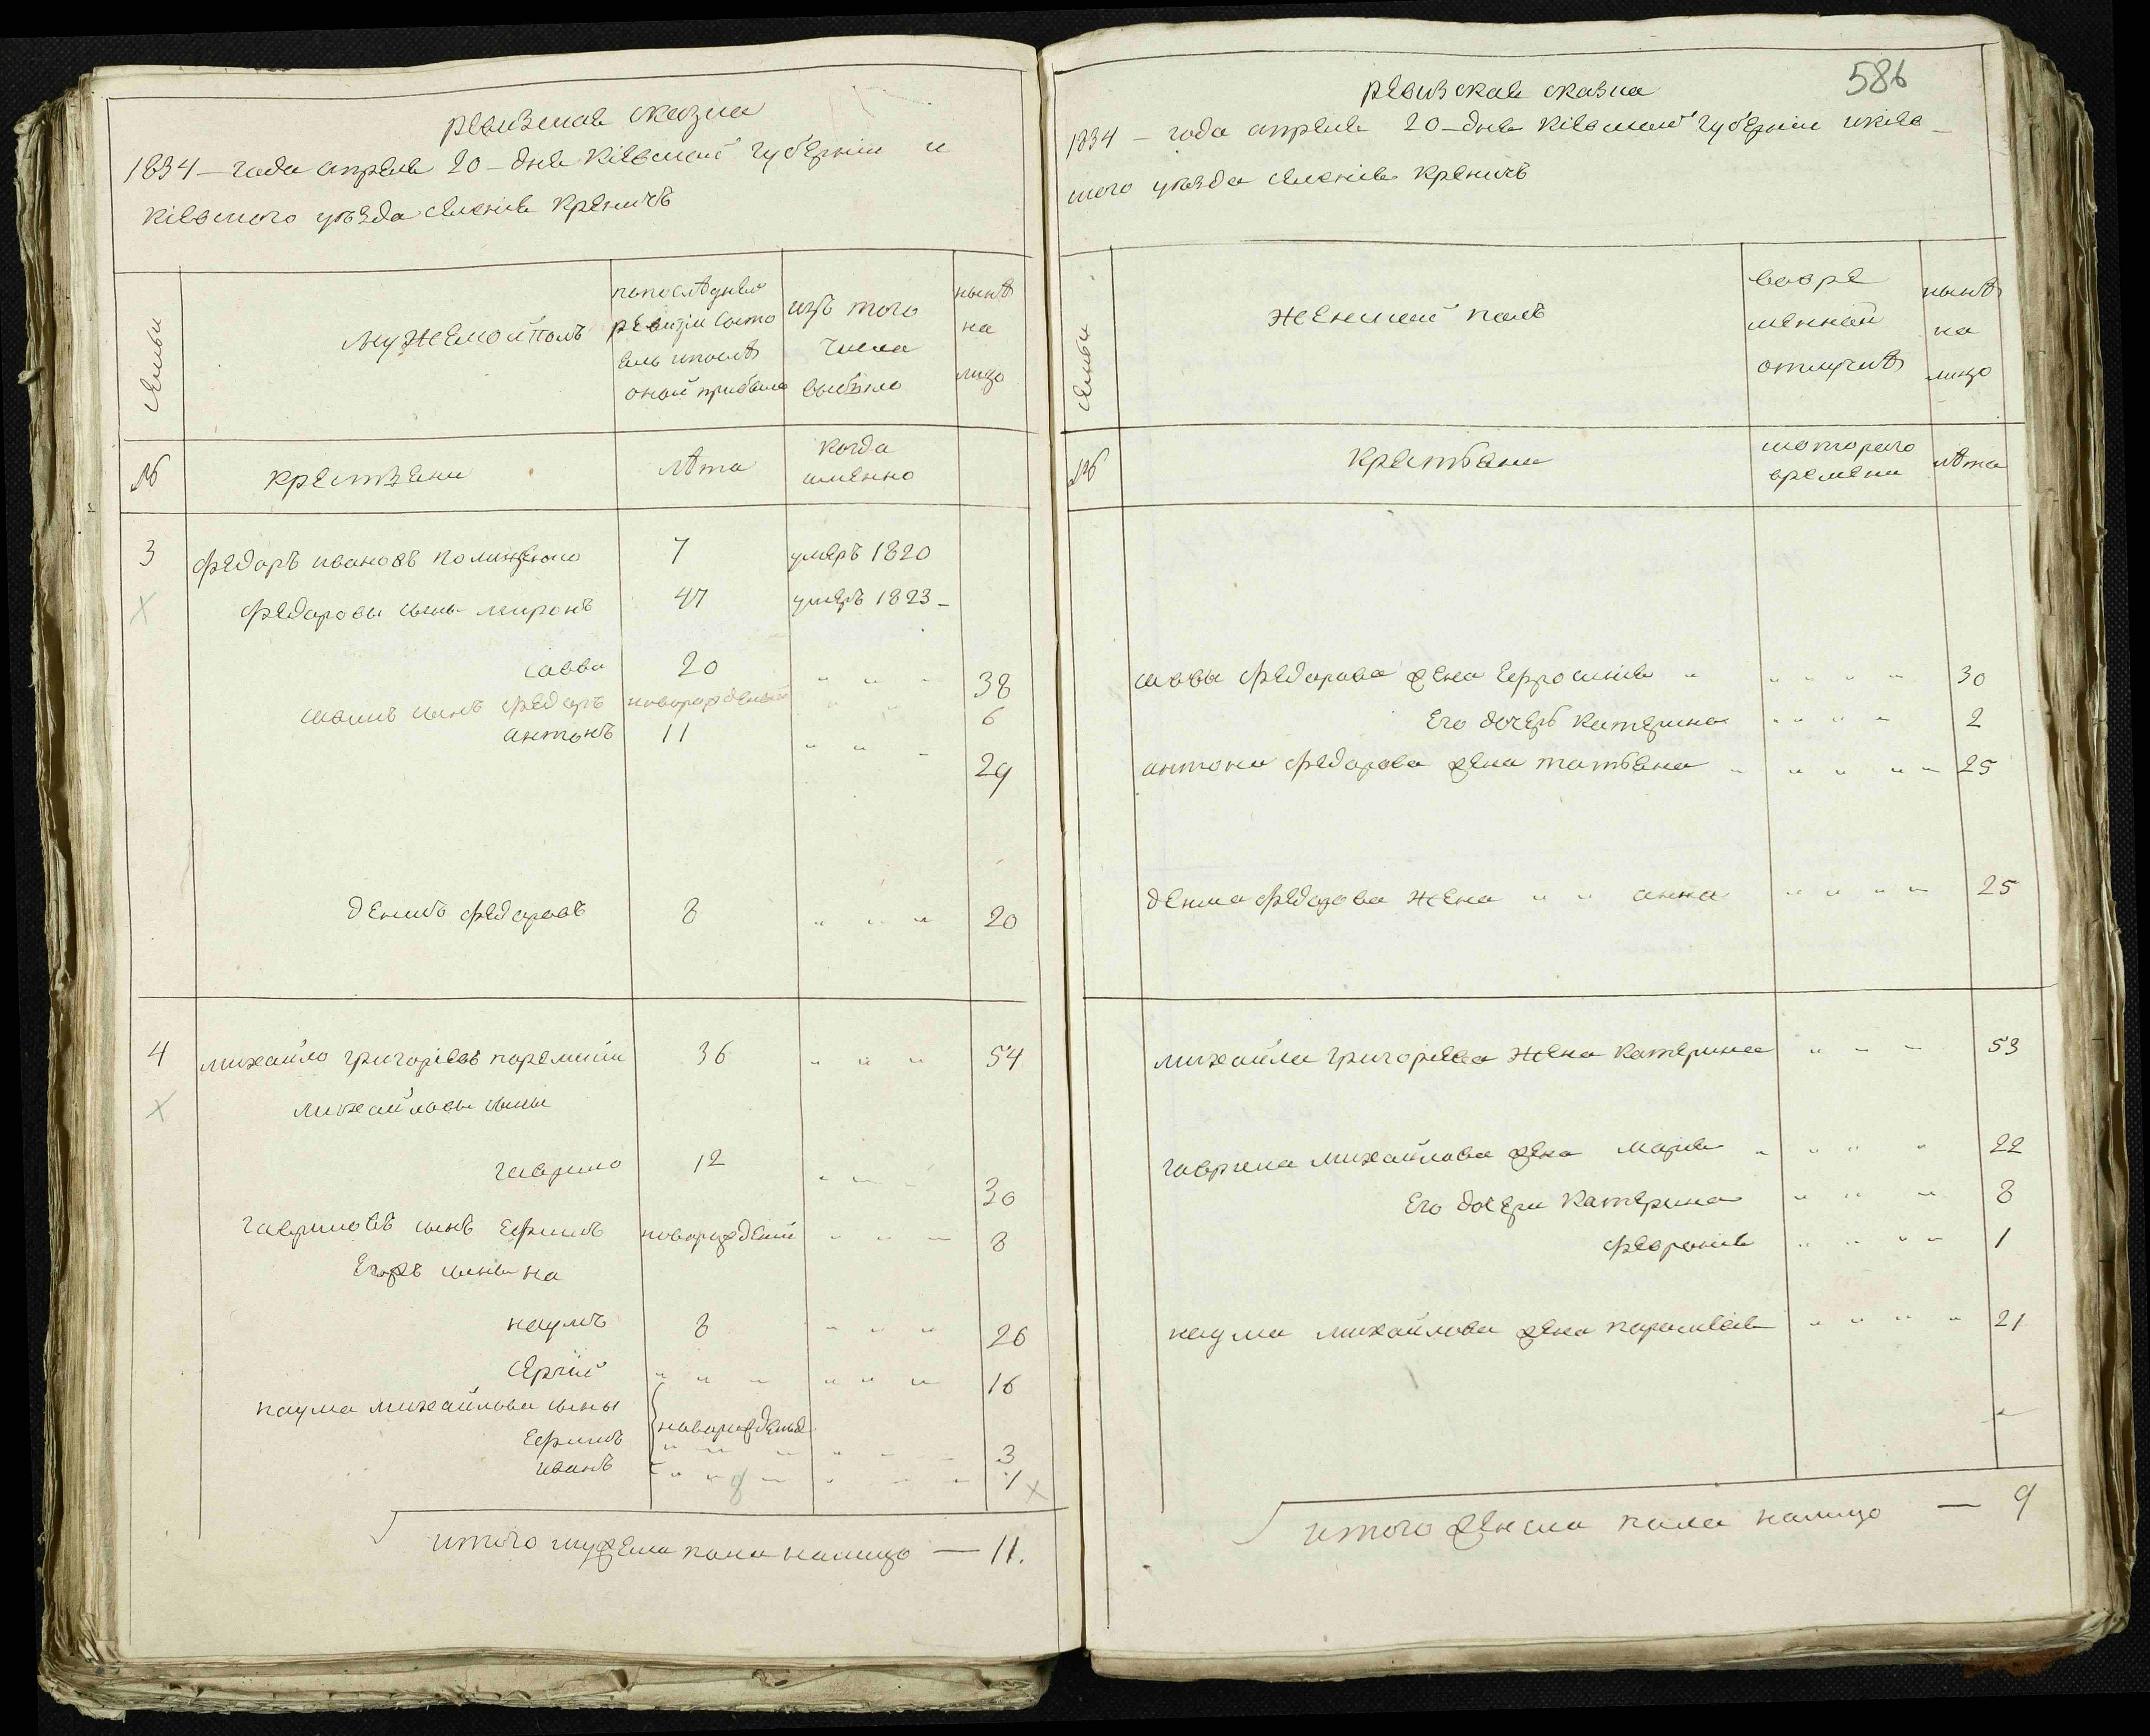 ревизская сказка
1834 – года апреля 20 – дня кіевской губерніи и
кіевского уѣзда селенія креничъ
семьи
мужескойполъ
попослѣдней
ревизіи состо
ялъ ипослѣ
оной прибыло
изъ того
числа
выбыло
нынѣ
на
лицо
№
крестьяни
лѣта
когда
именно
3 федоръ ивановъ 7 умеръ 1820
федоровы сынь миронъ 47 умеръ 1823 –
савва 20 " " " 38
савинъ сынъ федоръ новорожденый " " 6
антонъ 11 " " " 29
денисъ федоровъ 8 " " " 20
4 михайло григоріевъ 36 " " " 54
михайловы сыны
гаврило 12 " " " 30
гавриловъ сынъ ефимъ новорожденій " " " 8
наумъ 8 " " " 26
сергій " " " " " " 16
наума михайлова сыны
ефимъ новорожденыя " " " 3
иванъ " " " " " " 1
итого мужеска пола налицо — 11.
586
ревизская сказка
1834 – года апреля 20 – дня кіевской губерніи икіев –
ского уѣзда селенія креничъ
семьи
женской полъ
вовре
менной
отлучкѣ
нынѣ
на
лицо
№
крестьяни
скоторого
времени
лѣта
саввы федорова жена ефросинія " " " " " 30
его дочерь катерина " " " " 2
антона федорова жена татьяна " " " " " 25
дениса федорова жена " " анна " " " " 25
михайла григорьева жена катерина " " " 53
гаврила михайлова жена марія " " " " 22
его дочери катерина " " " 8
февронія " " " " 1
наума михайлова жена параскевія " " " " 21
итого женска пола налицо — 9